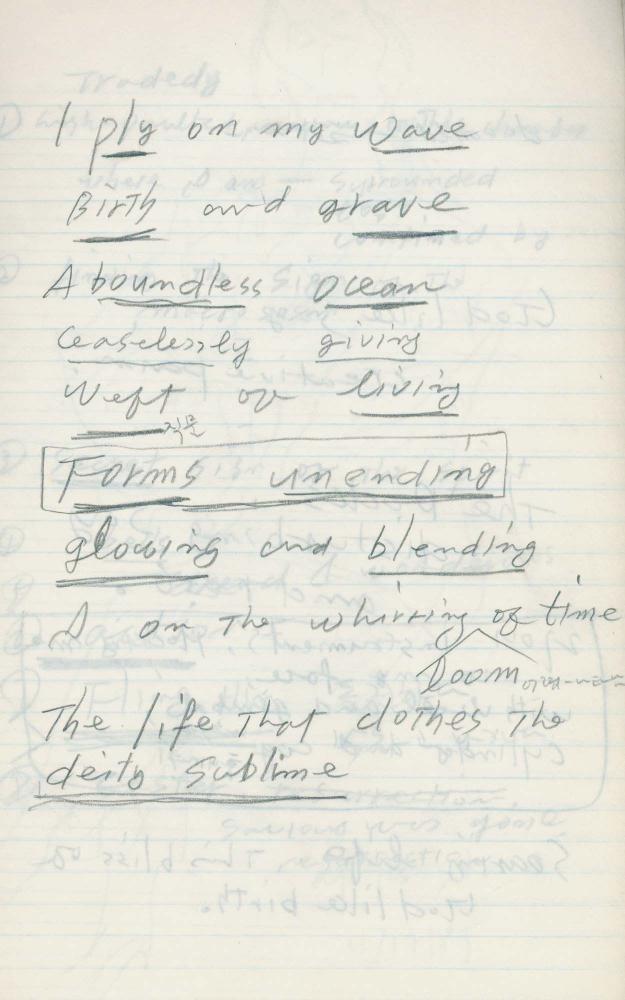 I ply on my wave
Birth and grave
A boundless ocean
Ceaselessly giving
Weft of living
직물
Forms unending
glowing and blending
I on the whirring of time
loom
The life that clothes the
deity sublime